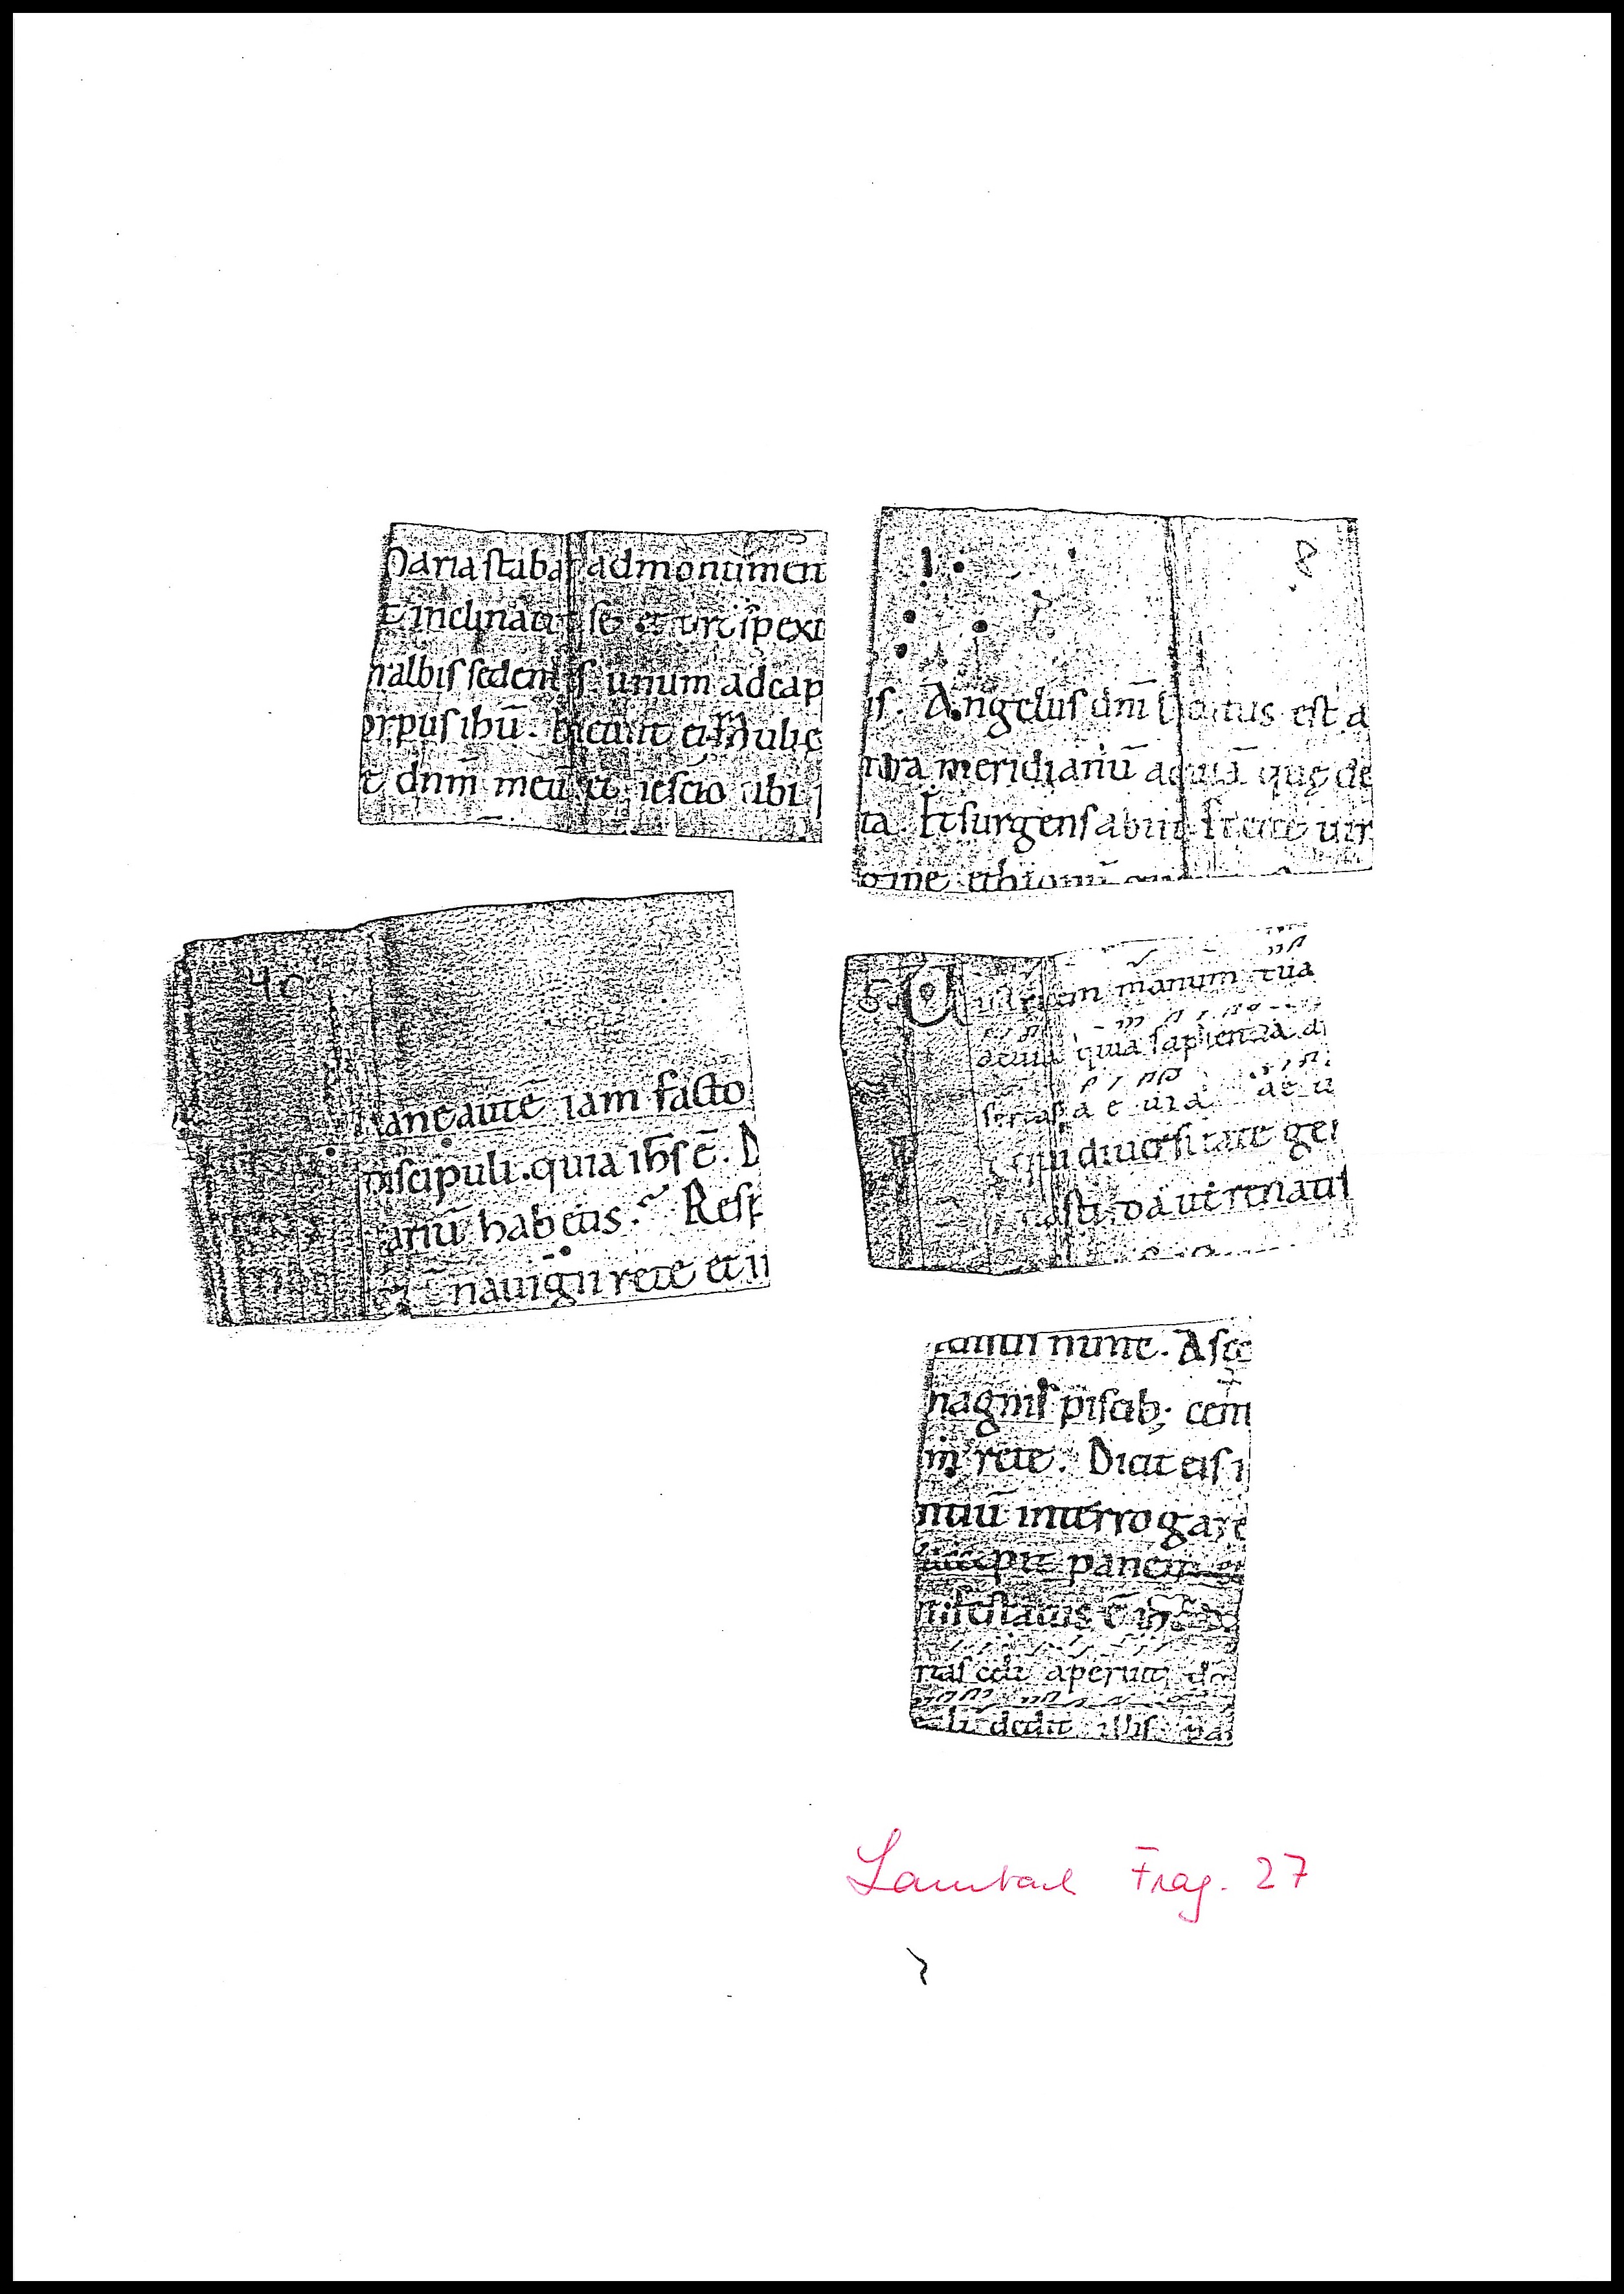 Maria stabat ad monumen
t inclinauit se et
n albis sedentes unum ad cap
orpus ihū. Dicunt ei Mulie
t dnm̄ meū et nescio ubi
8.
is. Angelus dnī locutus est a
ntra meridianū ad uiā quę de
ta. Et surgens abiit. Et ecce uir
ine ethiopū
40
ane autē iam facto
discipuli. quia ihs ē. D
tariū habetis? Resp
nauigii rete et i
5. U
ictricem manum tua
quia sapientia
diuersitate gen
da ut renatis
nunc. Asce
magnis piscib; cem
rete. Dicit eis i
ntiū interrogare
accepit panem
nifestatus ē ihs
rtas celi aperuit d
eli dedit illis pa
Lambach Frag. 27